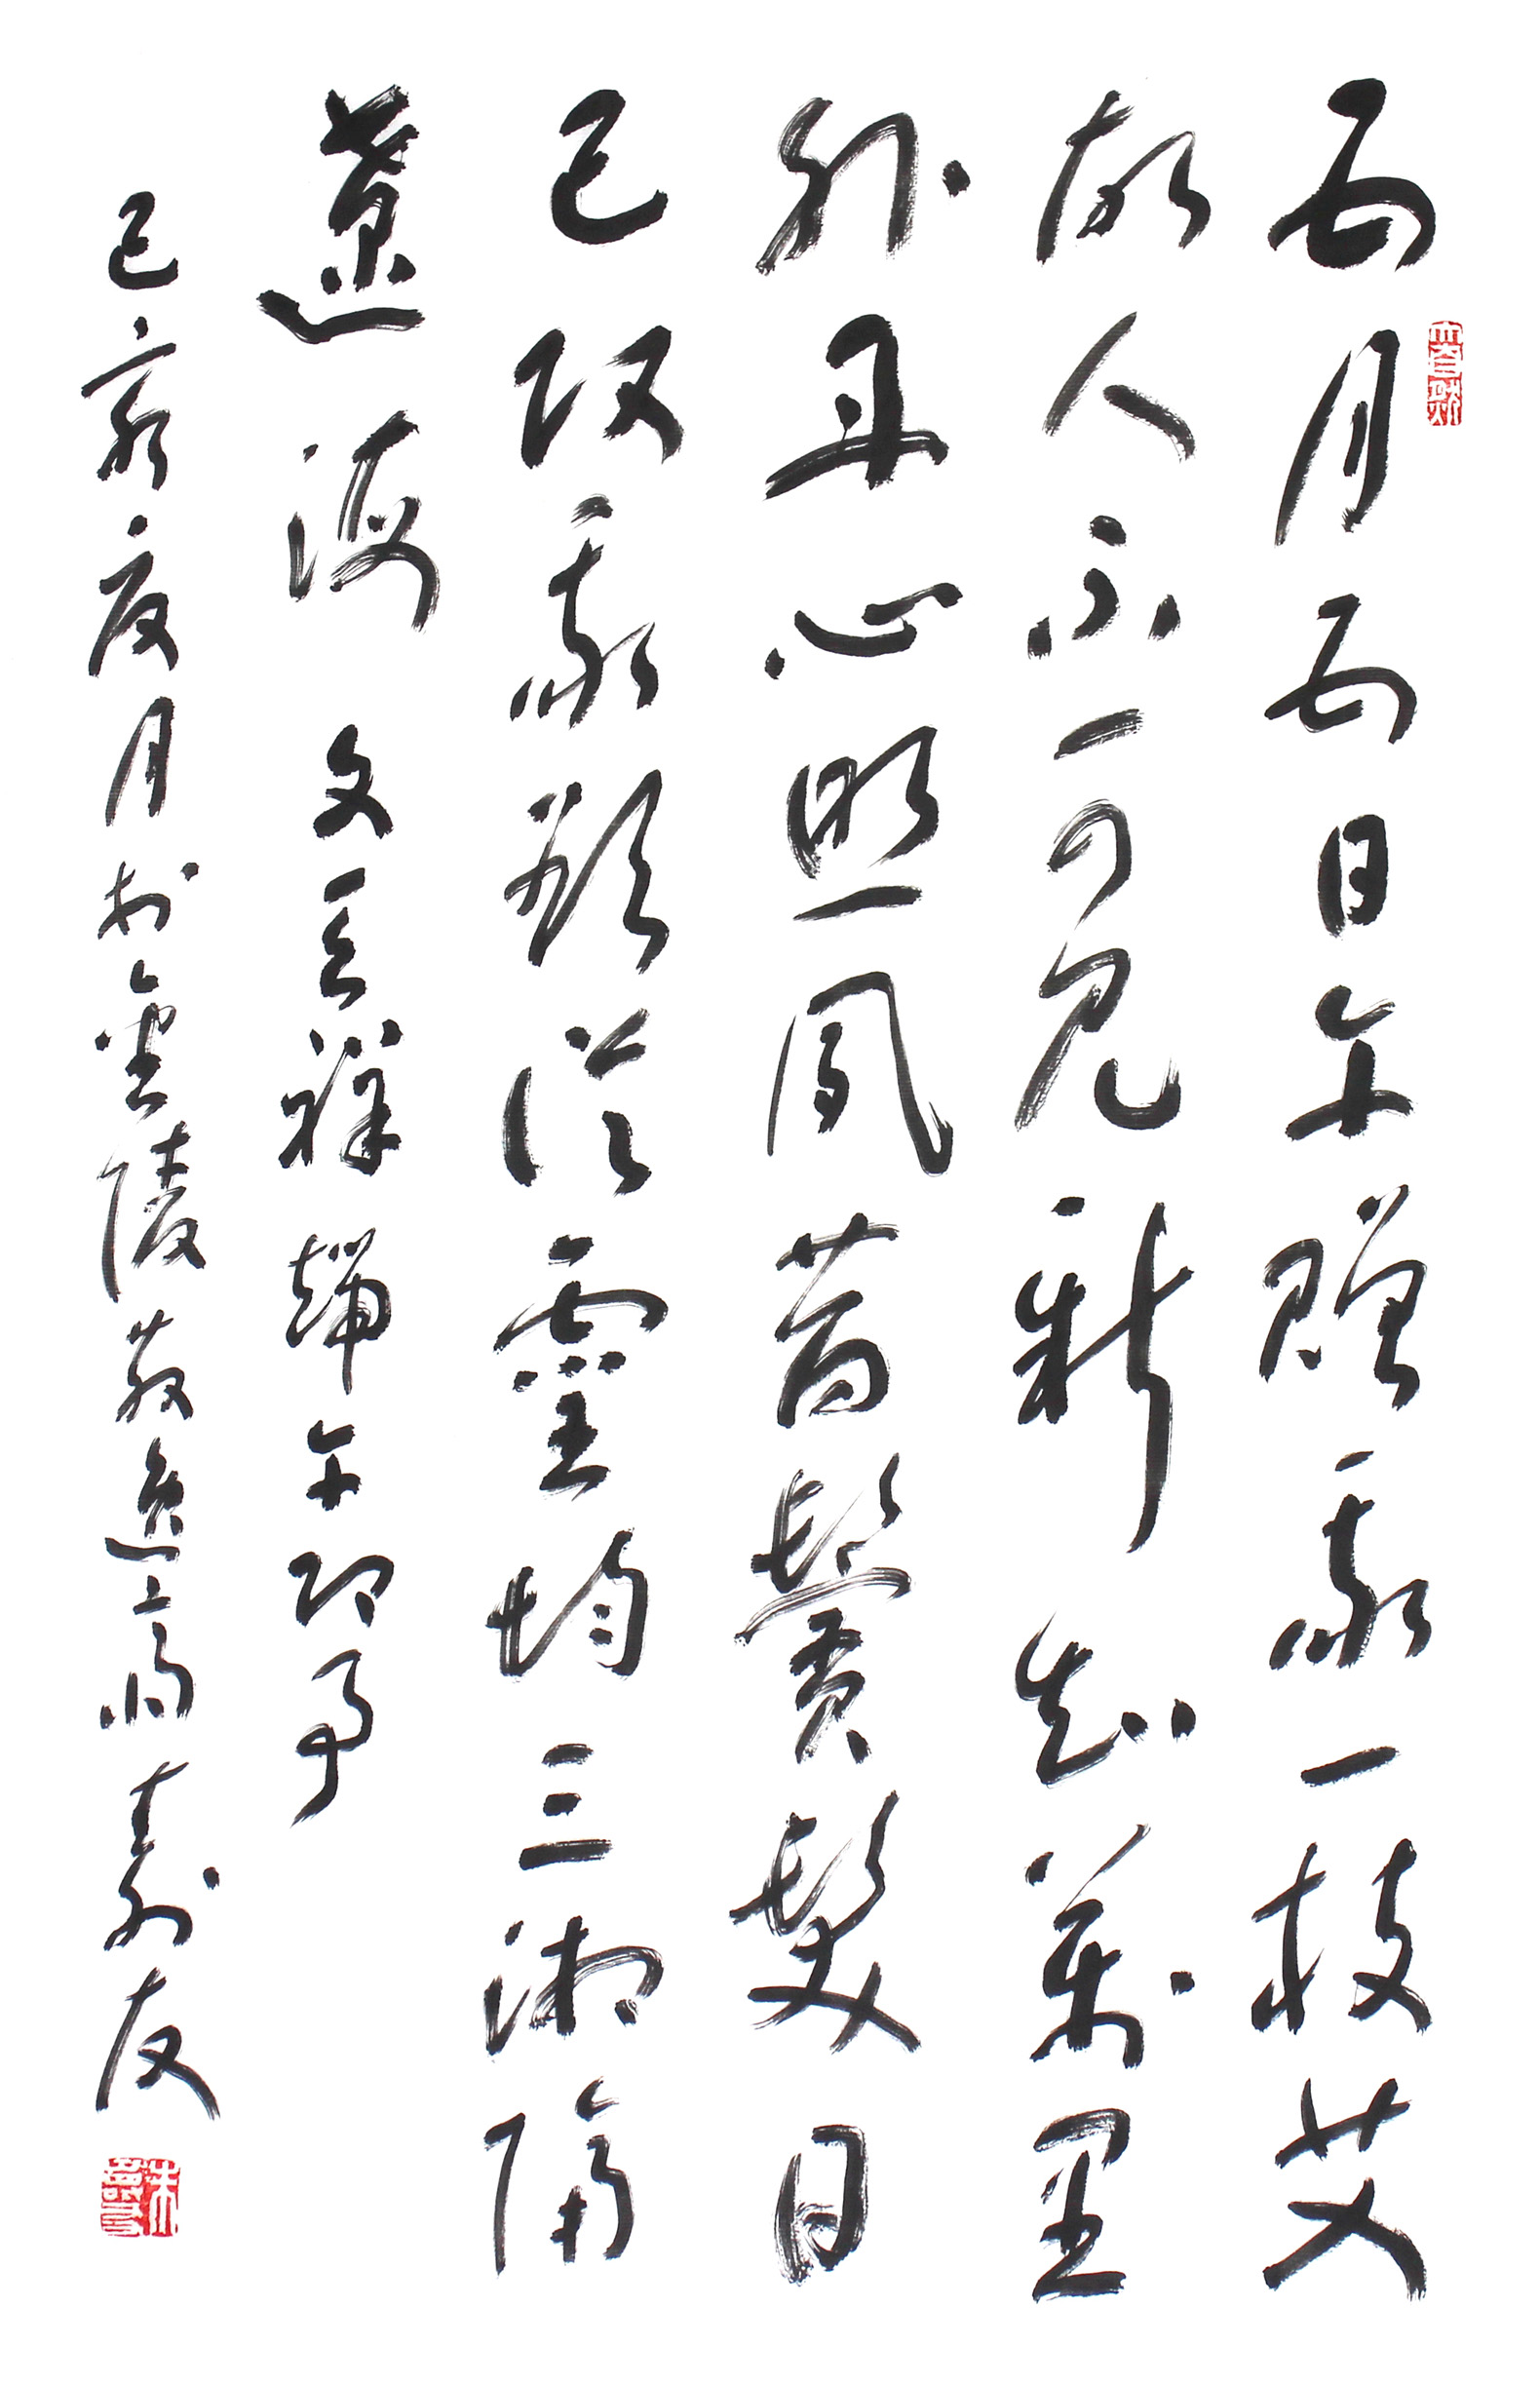 五月五日午贈我一枝艾
故人不可見新知萬里
外丹心照夙昔鬢髮日
已改我欲從靈均三湘隔
遼海 文天祥端午即事
己亥夏月於金陵散逸齋壽友
朱壽友